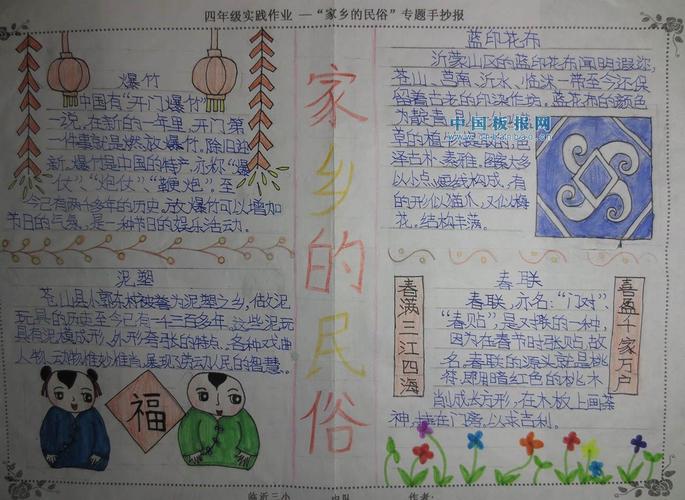 四年级实践作业 —“家乡的民俗”专题手抄报
爆竹
中国有“开门爆竹”
一说,在新的一年里,开门第
一件事就是燃放爆竹,除旧迎
新。爆竹是中国的特产,亦称“爆
仗”“炮仗”“鞭炮”。至
今己有两千多年的历史。放爆竹可以增加
节日的气氛,是一种节日的娱乐活动。
泥塑
苍山县小郭东村被誉为泥塑之乡,做泥
玩具的历史至今已有一千三百多年,这些泥玩
具有泥模成形、外形夸张的特点。各种戏曲
人物、动物惟妙惟肖,展现了劳动人民的智慧。
福
家乡的民俗
蓝印花布
沂蒙山区的蓝印花布闻名遐迩,
苍山、莒南、沂水、临沭一带至今还保
留着古老的印染作坊。蓝花布的颜色
为靛青,
草的植物提取的,色
泽古朴、素雅。图案大多
以小点、短线构成,有
的形似猫爪,又似梅
花。结构丰满。
中国板报网
春联
春联,亦名:“门对”
“春贴”,是对联的一种,
因为在春节时张贴,故
名。春联的源头就是桃
符,即用暗红色的桃木
削成长方形,在木板上画茶
神,挂在门旁,以求吉利。
春满三江四海
喜盈千家万户
临沂三小 中队 作者: